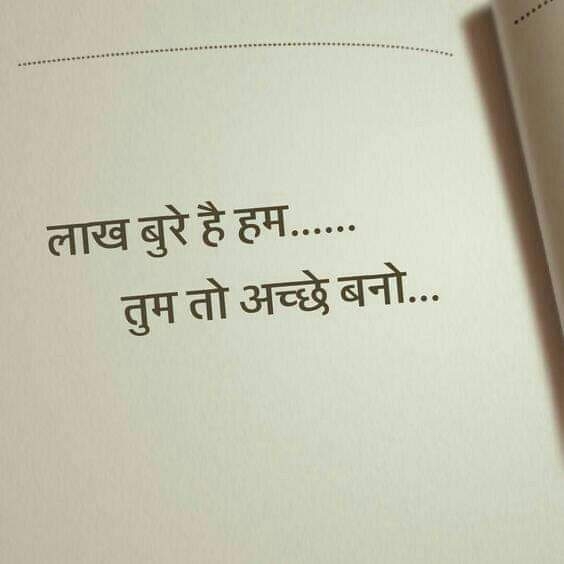 लाख बुरे है हम......
तुम तो अच्छे बनो...